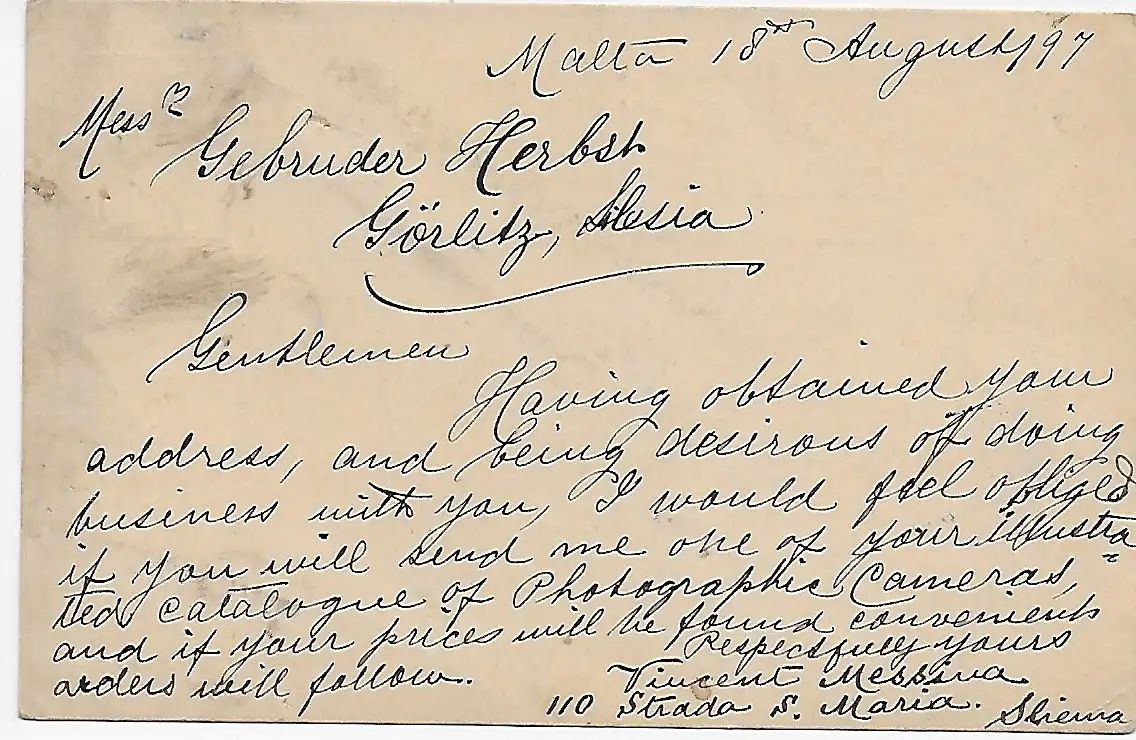 Malta 18th August/97
Messrs
Gebruder Herbst
Görlitz, Silesia
Gentlemen
Having obtained your
address, and being desirous of doing
business with you, I would feel obliged
if you will send me one of your illustra-
ted catalogue of Photographic Cameras,
and if your prices will be found convenient
orders will follow.
Respectfully yours
Vincent Messina
110 Strada S. Maria. Sliema